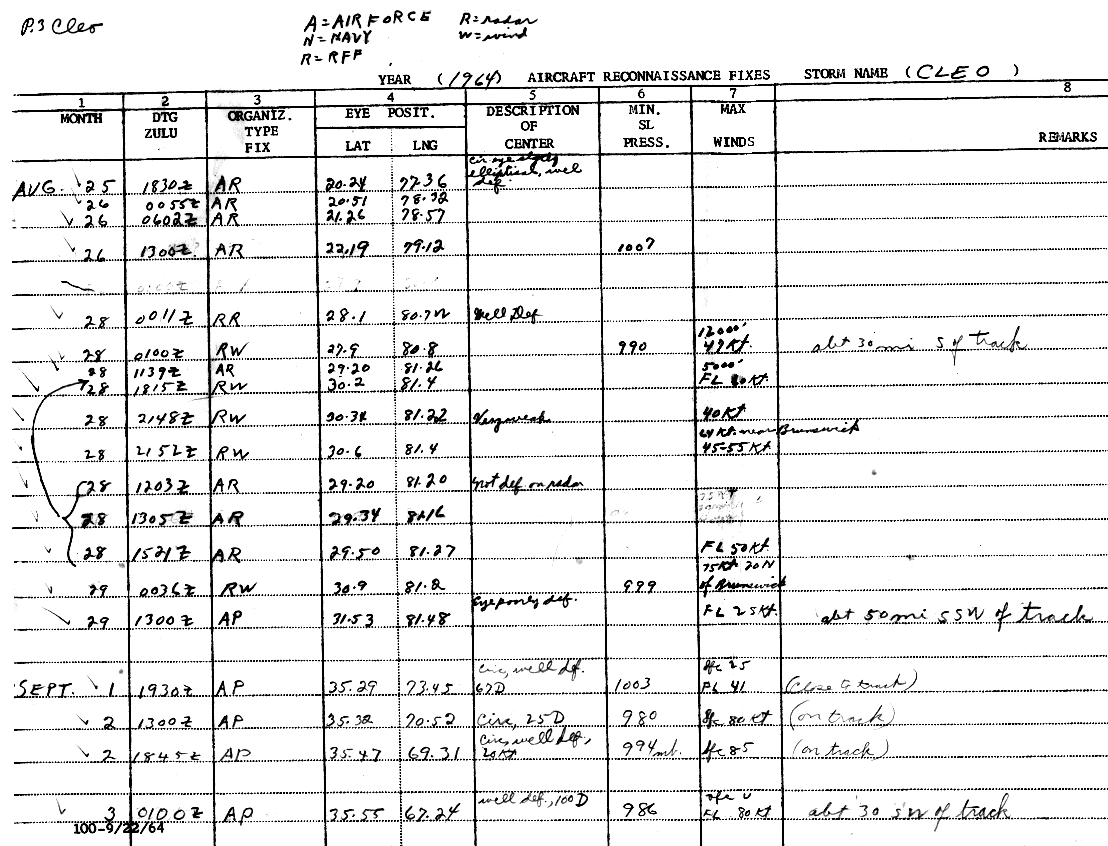 P.3 Cleo
A=AIR FORCE R=radar
N=NAVY W=wind
R=RFF
YEAR (1964) AIRCRAFT RECONNAISSANCE FIXES STORM NAME (CLEO)
1 2 3 4 5 6 7 8
MONTH DTG ZULU ORGANIZ. TYPE FIX EYE POSIT. LAT LNG DESCRIPTION OF CENTER MIN. SL PRESS. MAX WINDS REMARKS
AUG. 25 1830Z AR 20.24 77.36 elliptical, well def.
26 0055Z AR 20.51 78.32
26 0602Z AR 21.26 78.57
26 1300Z AR 22.19 79.12 1007
28 0011Z RR 28.1 80.7W Well Def
28 0100Z RW 27.9 80.8 990 12000' 47Kt. abt 30 mi S of track
28 1139Z AR 29.20 81.26 5000'
28 1815Z RW 30.2 81.4 FL 80Kt.
28 2148Z RW 30.34 81.22 Very weak 40Kt
28 2152Z RW 30.6 81.4 64 Kt. near Brunswick 45-55Kt.
28 1203Z AR 29.20 81.20 not def on radar
28 1305Z AR 29.34 81.16
28 1521Z AR 29.50 81.27 FL 50Kt.
29 0036Z RW 30.9 81.2 999 75Kt 20N of Brunswick
29 1300Z AP 31.53 81.48 Eye poorly def. FL 25Kt. abt 50 mi SSW of track
SEPT. 1 1930Z AP 35.29 73.45 circ, well def. 67D 1003 sfc 25 FL 41 (Close to track)
2 1300Z AP 35.32 70.52 Circ, 25D 980 sfc 80Kt (on track)
2 1845Z AP 35.47 69.31 circ, well def, 994mb. sfc 85 (on track)
3 0100Z AP 35.55 67.24 well def., 100D 986 FL 80Kt abt 30 SW of track
100-9/22/64